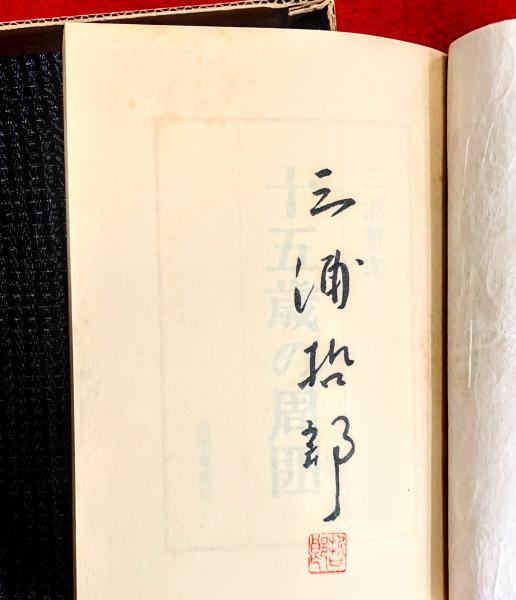 三浦哲郎
三浦哲郎
十五歳の周囲
哲郎